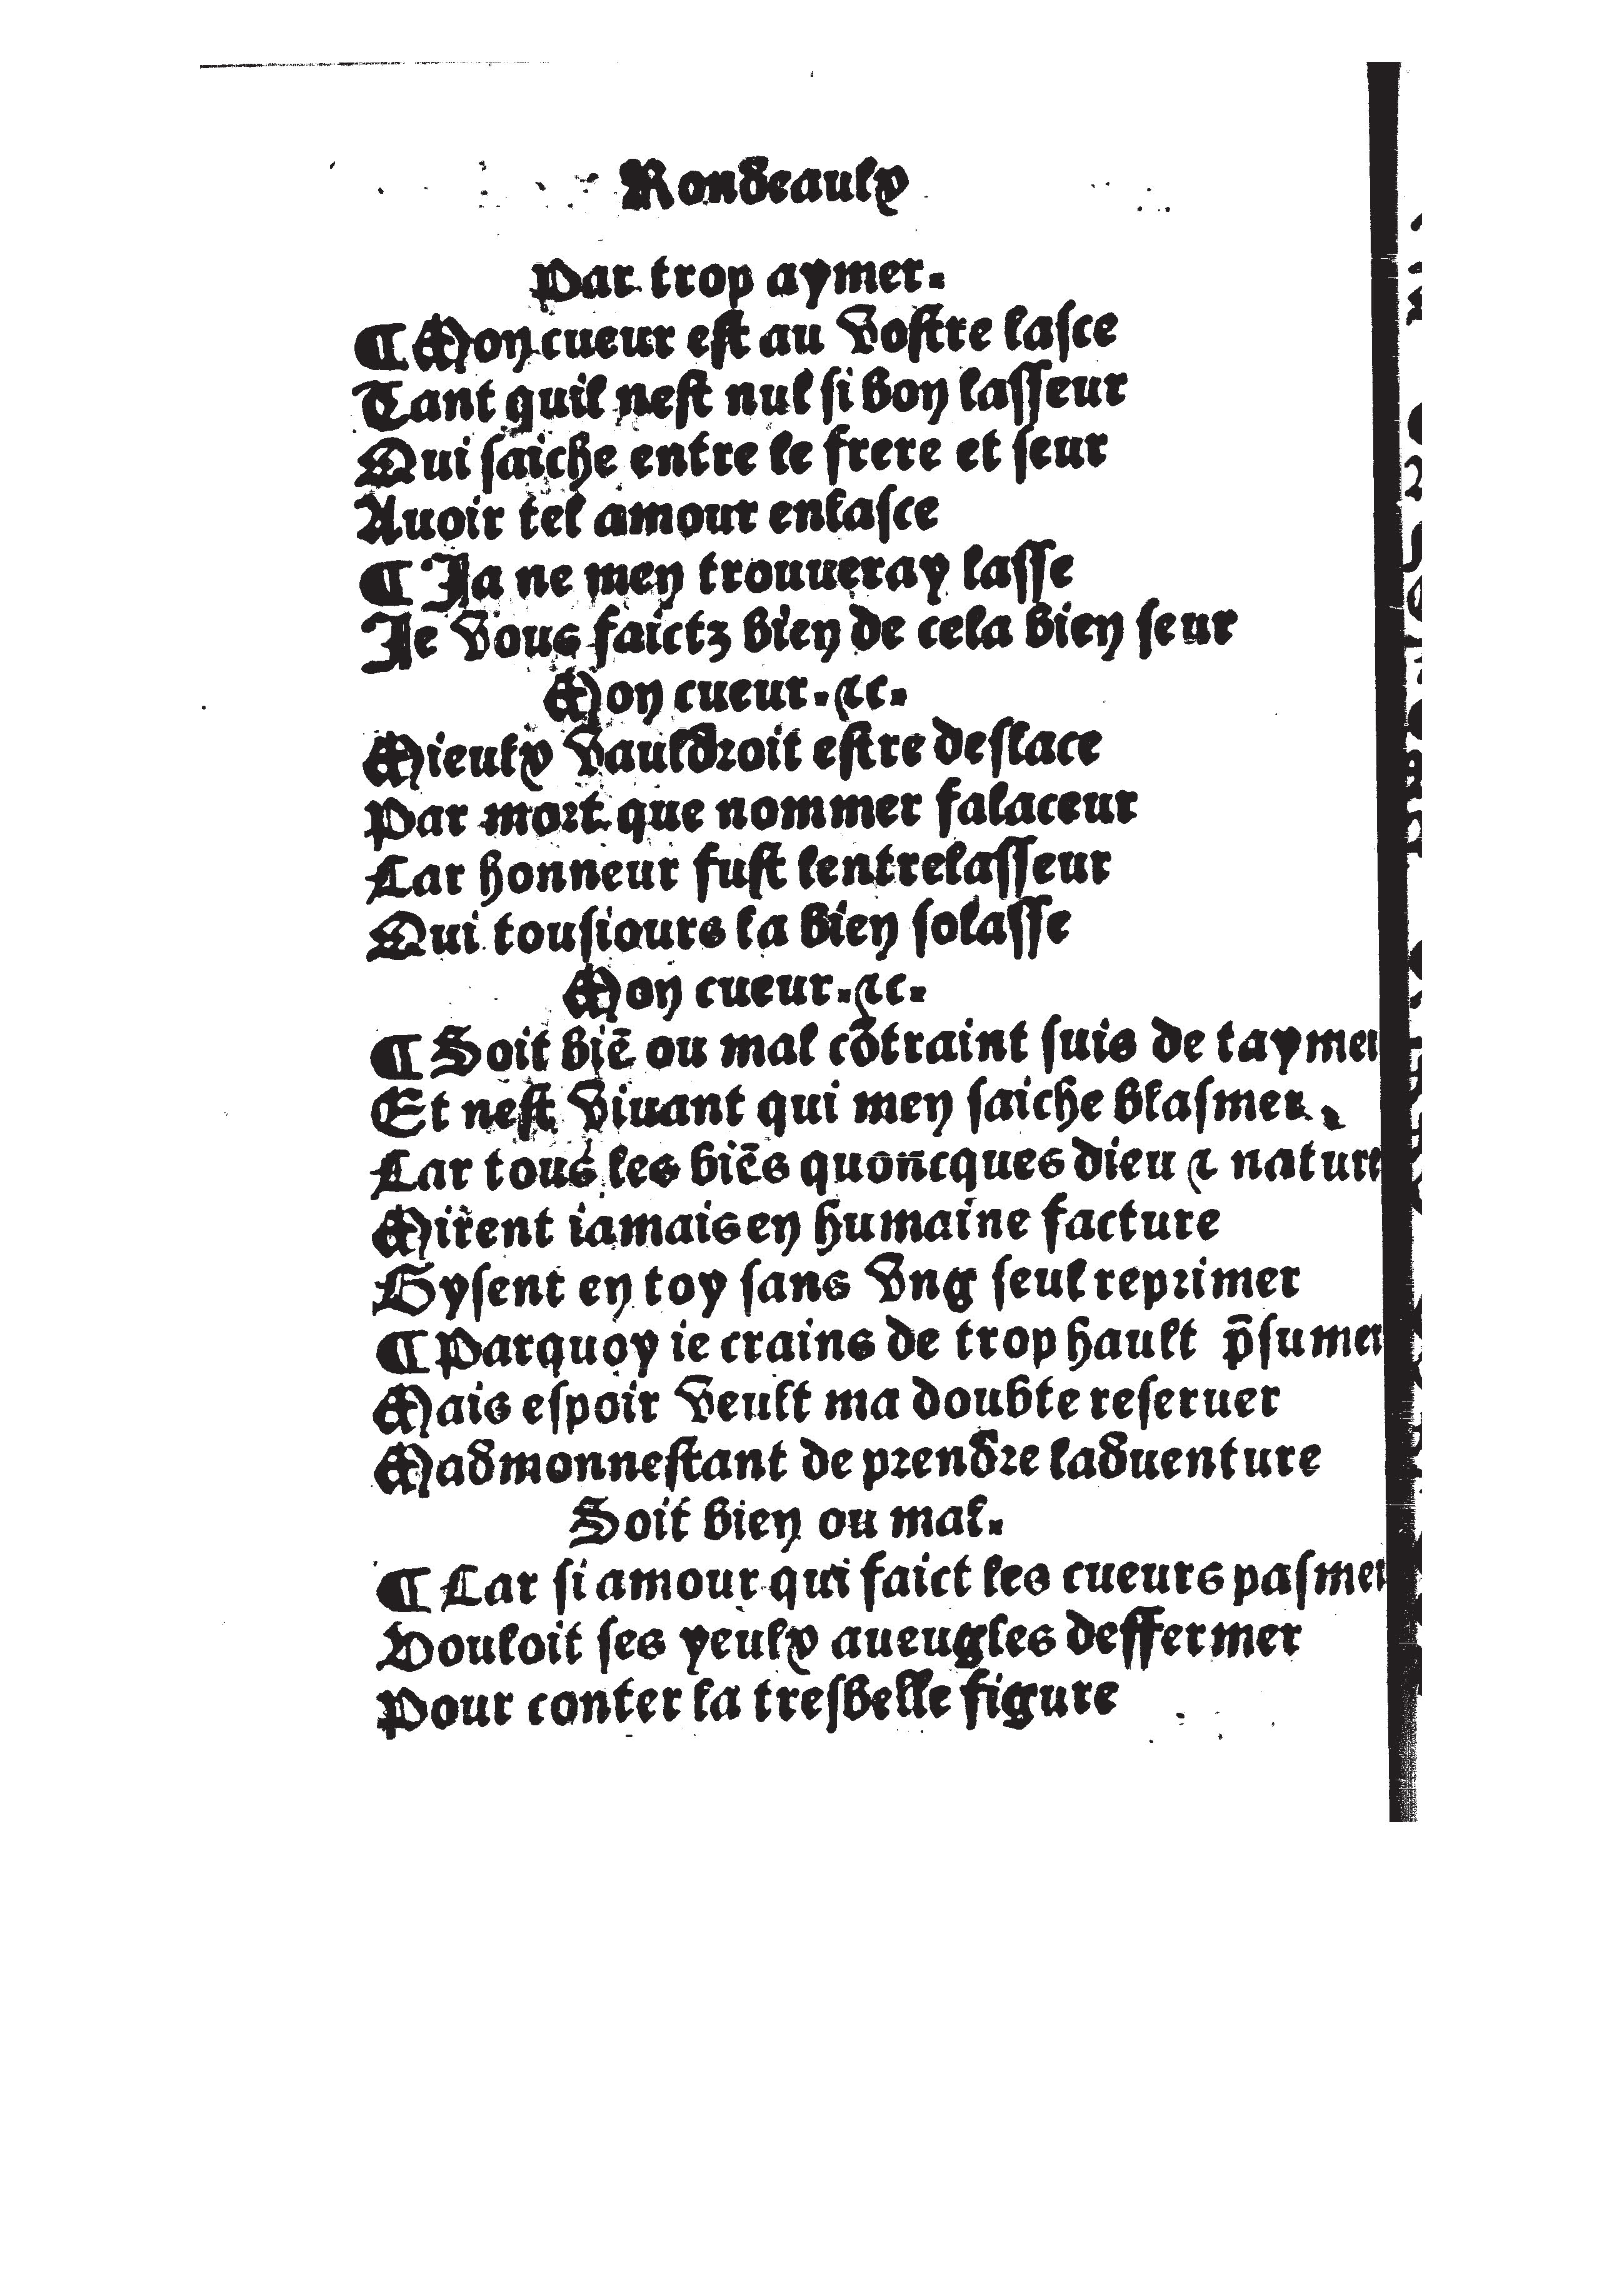 Rondeaulx
Par trop aymer.
¶ Mon cueur est au vostre lasce
Tant quil nest nul si bon lasseur
Qui saiche entre le frere et seur
Auoir tel amour enlasce
¶ Ja ne men trouueray lasse
Je vous faictz bien de cela bien seur
Mon cueur. ⁊c.
Mieulx vauldroit estre deslace
Par mort que nommer falaceur
Car honneur fust lentrelasseur
Qui tousiours la bien solasse
Mon cueur. ⁊c.
¶ Soit biē ou mal cōtraint suis de taymer
Et nest viuant qui men saiche blasmer
Car tous les biēs quoncques dieu ⁊ nature
Mirent iamais en humaine facture
Gysent en toy sans vng seul reprimer
¶ Parquoy ie crains de trop hault p̄sumer
Mais espoir veult ma doubte reseruer
Madmonnestant de prendre laduenture
Soit bien ou mal.
¶ Car si amour qui faict les cueurs pasmer
Vouloit ses yeulx aueugles deffermer
Pour conter la tresbelle figure